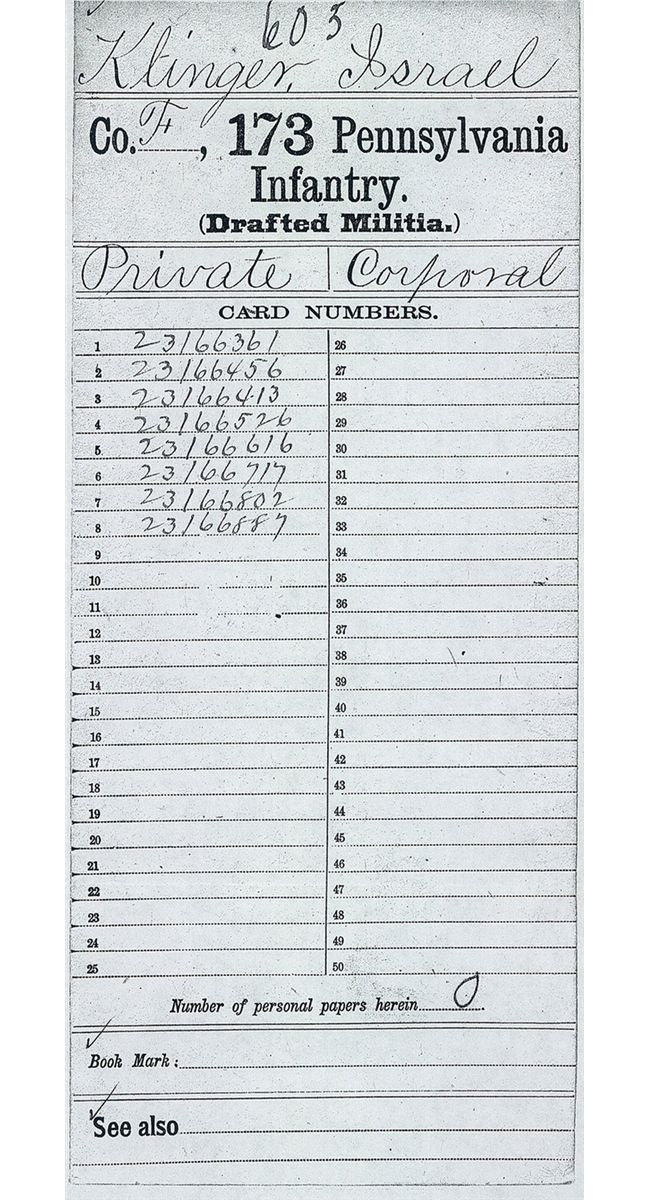 603
Klinger, Israel
Co. F, 173 Pennsylvania
Infantry.
(Drafted Militia.)
Private | Corporal
CARD NUMBERS.
1 23166361 26
2 23166456 27
3 23166413 28
4 23166526 29
5 23166616 30
6 23166717 31
7 23166802 32
8 23166887 33
9 34
10 35
11 36
12 37
13 38
14 39
15 40
16 41
17 42
18 43
19 44
20 45
21 46
22 47
23 48
24 49
25 50
Number of personal papers herein 0.
Book Mark:
See also